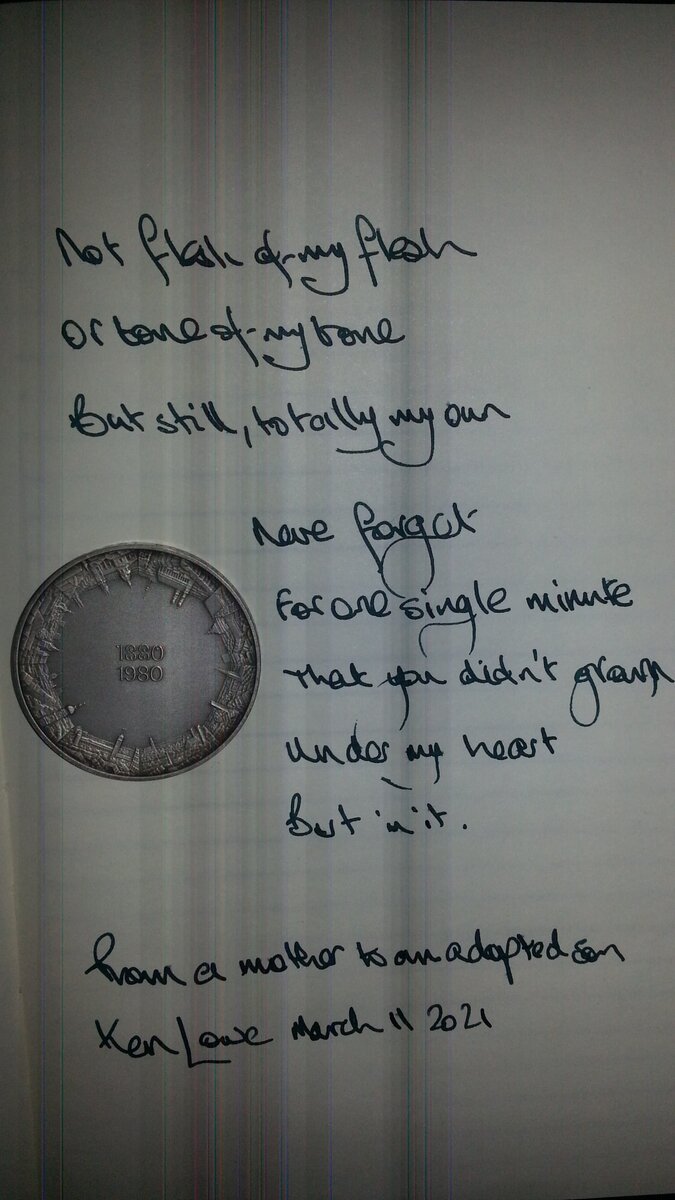 Not flesh of my flesh
Or bone of my bone
But still, totally my own
Never forget
For one single minute
That you didn't grow
Under my heart
But in it.
1880
1980
From a mother to an adopted son
Ken Lowe March 11 2021